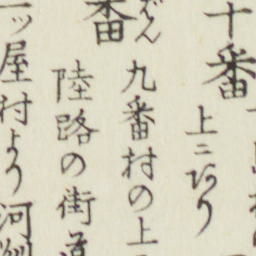 十番
上ニあり
ばん
番
九番村の上
陸路の街道
一ッ屋村より河州